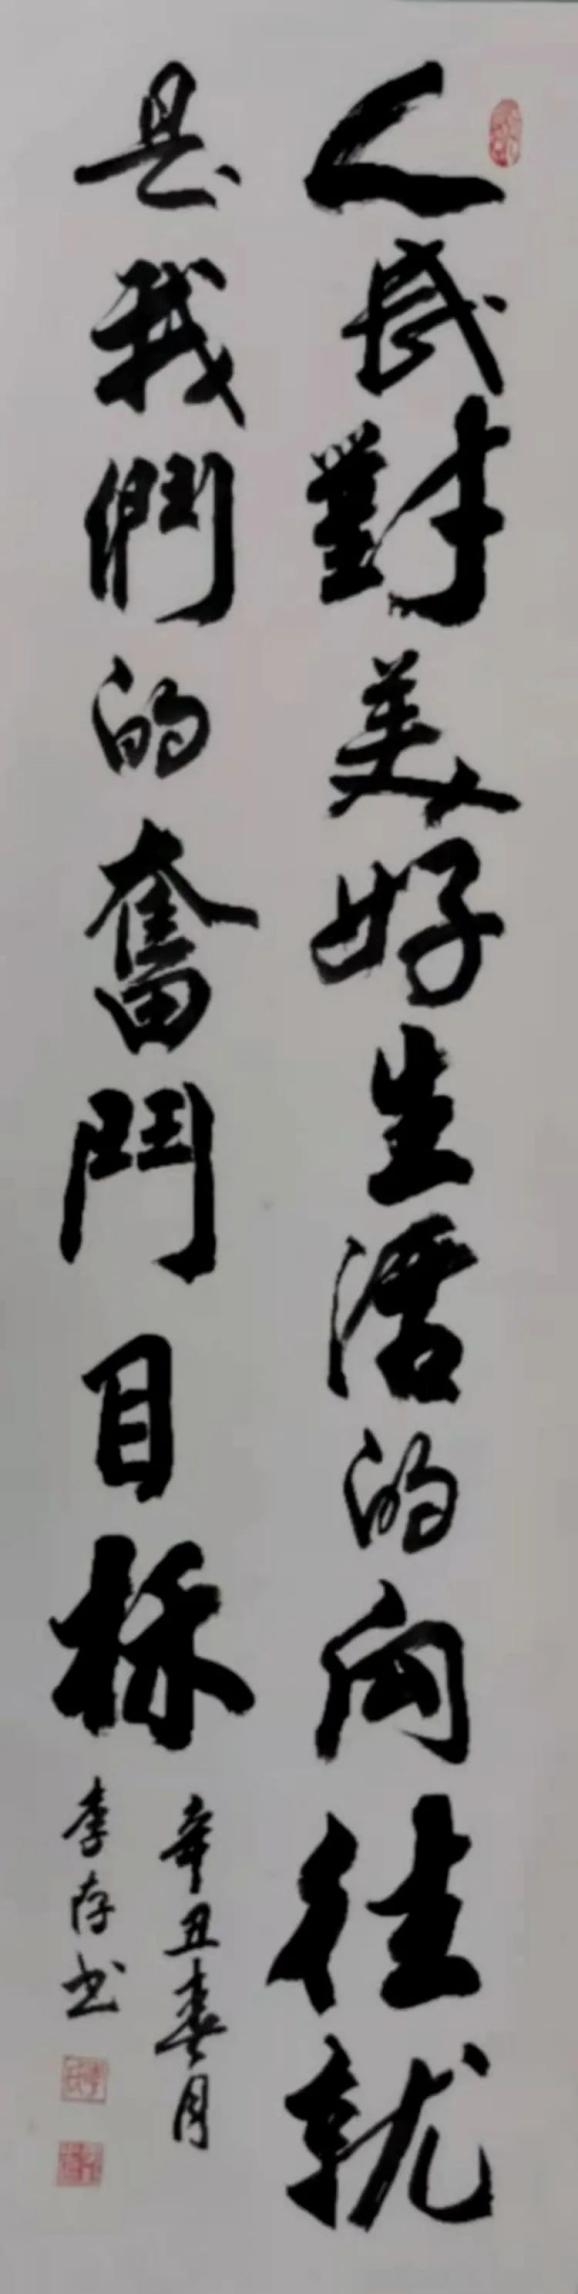 人民對美好生活的向往就
是我們的奮鬥目标
辛丑春月
李存书